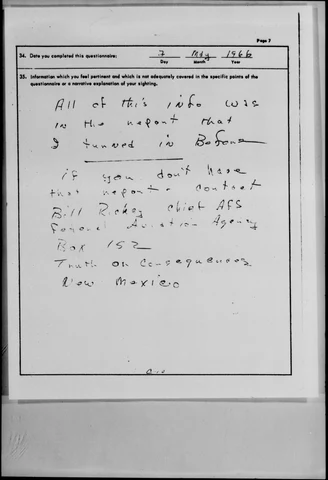 Page 7
34. Date you completed this questionnaire: 7 May 1966
Day Month Year
35. Information which you feel pertinent and which is not adequately covered in the specific points of the
questionnaire or a narrative explanation of your sighting.
All of this info was
in the report that
I turned in Before
if you don't have
that report - contact
Bill Rickey chief AFS
Federal Aviation Agency
Box 152
Truth or Consequences
New Mexico